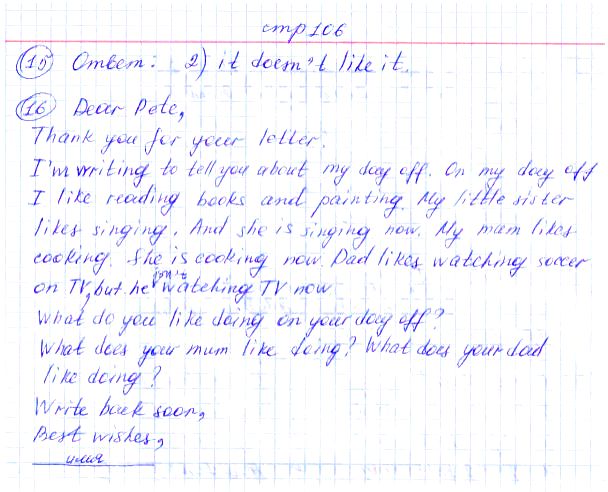 стр 106
15 Ответ: 2) it doesn't like it.
16 Dear Pete,
Thank you for your letter.
I'm writing to tell you about my day off. On my day off
I like reading books and painting. My little sister
likes singing. And she is singing now. My mam likes
cooking. She is cooking now. Dad likes watching soccer
on TV, but he isn't watching TV now
What do you like doing on your day off?
What does your mum like doing? What does your dad
like doing?
Write back soon,
Best wishes,
имя